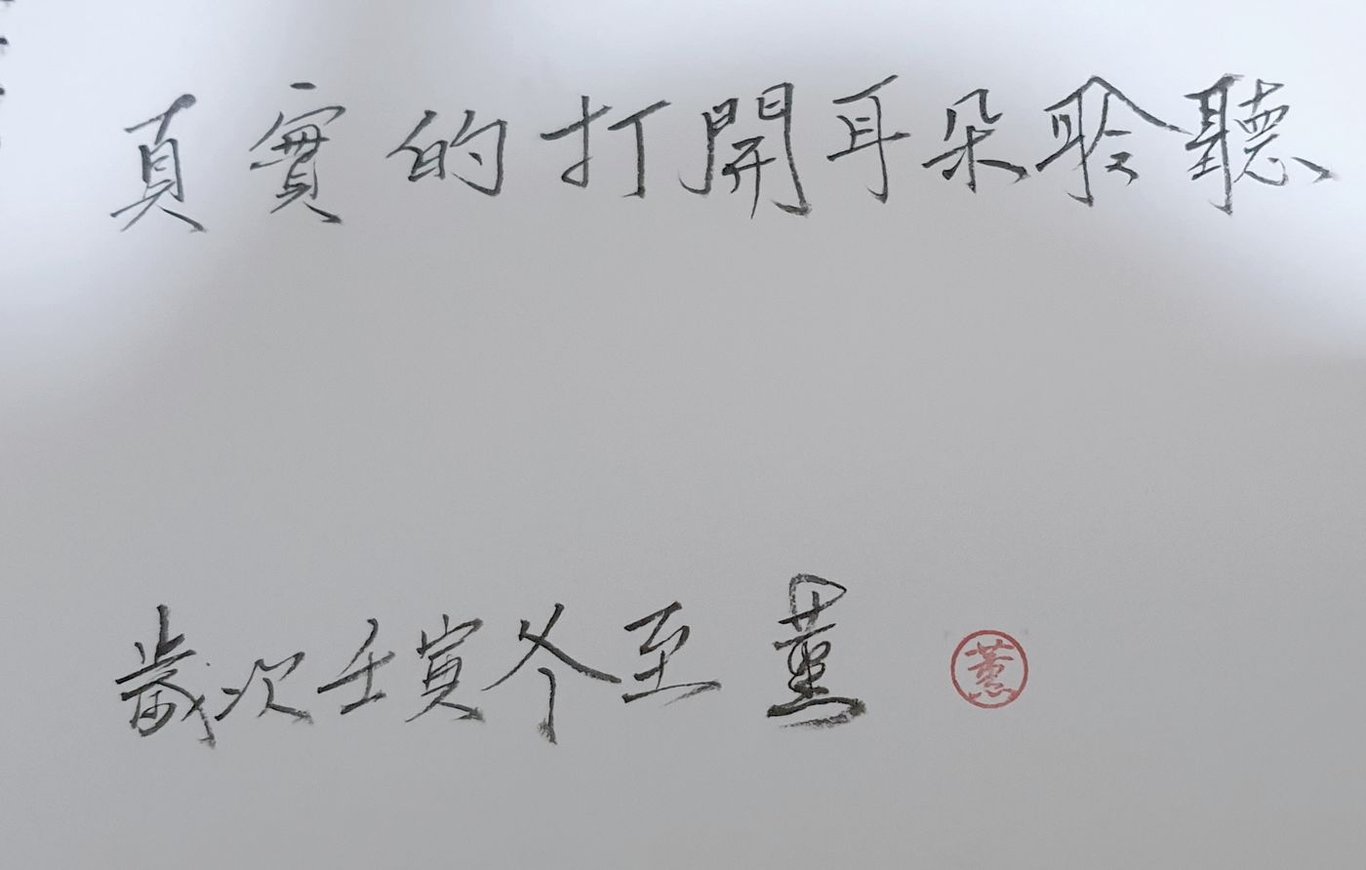 真實的打開耳朵聆聽
歲次壬寅冬至 薰